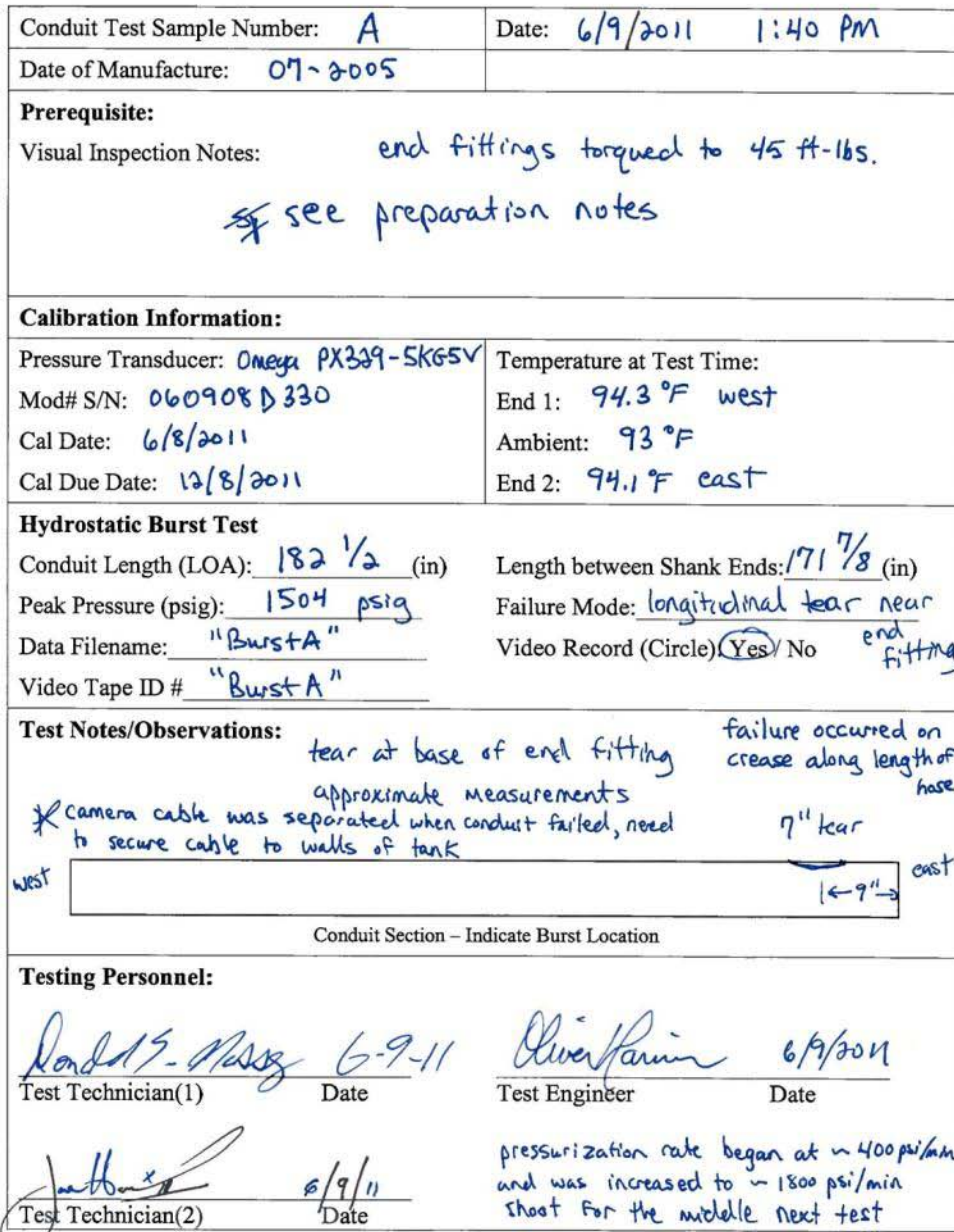 Conduit Test Sample Number: A Date: 6/9/2011 1:40 PM
Date of Manufacture: 07-2005
Prerequisite:
Visual Inspection Notes: end fittings torqued to 45 ft-lbs.
see preparation notes
Calibration Information:
Pressure Transducer: Omega PX329-5KG5V
Mod# S/N: 060908D330
Cal Date: 6/8/2011
Cal Due Date: 12/8/2011
Temperature at Test Time:
End 1: 94.3 °F west
Ambient: 93 °F
End 2: 94.1 °F east
Hydrostatic Burst Test
Conduit Length (LOA): 182 1/2 (in)
Peak Pressure (psig): 1504 psig
Data Filename: "BurstA"
Video Tape ID # "BurstA"
Length between Shank Ends: 171 7/8 (in)
Failure Mode: longitudinal tear near
end
fitting
Video Record (Circle) Yes / No
Test Notes/Observations:
tear at base of end fitting
approximate measurements
* camera cable was separated when conduit failed, need
to secure cable to walls of tank
failure occurred on
crease along length of
hose
7" tear
west
east
9"
Conduit Section – Indicate Burst Location
Testing Personnel:
6-9-11
Test Technician(1) Date
Oliver 6/9/2011
Test Engineer Date
6/9/11
Test Technician(2) Date
pressurization rate began at ~ 400 psi/min
and was increased to ~ 1800 psi/min
shoot for the middle next test